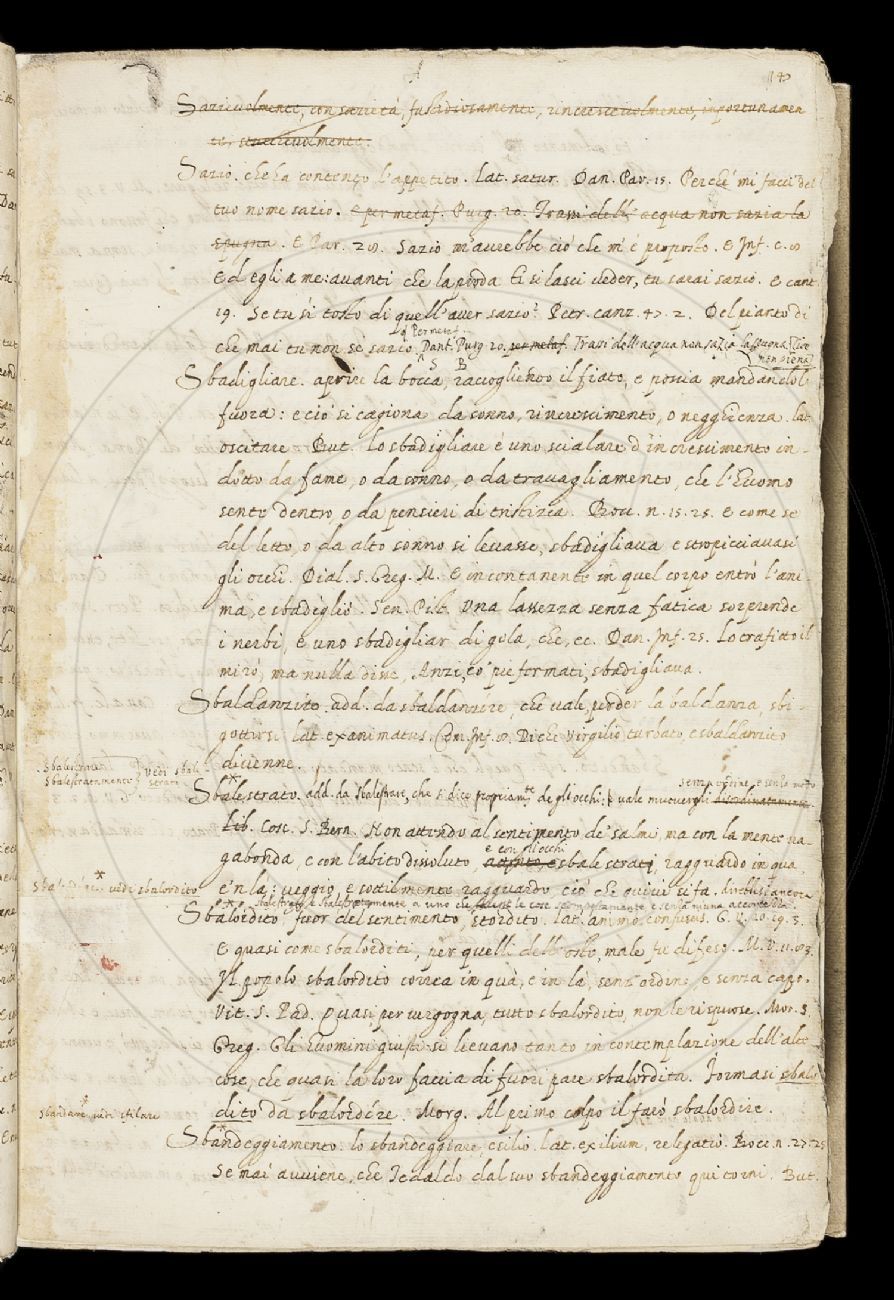 Sazievolmente, con sazietà, fastidiosamente, rincrescevolmente, importunamen
te, stucchevolmente.
Sazio. che ha contento l'appetito. lat. satur. Dan. Par. 15. Perchè mi facci del
tuo nome sazio. E per metaf. Purg. 20. Trassi dell' acqua non sazia la
spugna. E Par. Sazio m'avrebbe ciò che m'è proposto. E Inf. c.
Ed egli a me: avanti che la proda ti si lasci veder, tu sarai sazio. e cant.
19. Se' tu sì tosto di quell'aver sazio? Petr. canz. 47. 2. Del pianto di
che mai tu non se sazio. Dant. Purg. 20. per metaf. Trassi dell'acqua non sazia la spugna.
per metaf.
non piena
S B
Sbadigliare. aprire la bocca, raccogliendo il fiato, e poscia mandandol
fuora: e ciò si cagiona da sonno, rincrescimento, o neggienza. lat.
oscitare. But. Lo sbadigliare è uno scialare d'increscimento in-
dotto da fame, o da sonno, o da travagliamento, che l'huomo
sente dentro, o da pensieri di tristizia. Bocc. n. 15. 25. E come se
del letto, o da alto sonno si levasse, sbadigliava e stropicciavasi
gli occhi. Dial. S. Greg. M. E incontanente in quel corpo entrò l'ani-
ma, e sbadigliò. Sen. Pist. Una lassezza senza fatica sorprende
i nerbi, e uno sbadigliar di gola, che, ec. Dan. Inf. 25. Lo trafitto il
mirò, ma nulla disse, Anzi, co' piè fermati, sbadigliava.
Sbaldanzito. add. da sbaldanzire, che vale, perder la baldanza, sbi-
gottirsi lat. exanimatus. Com. Inf. Di che Virgilio turbato, e sbaldanzito
dicienne.
Sbalestratamente vedi sbale-
strare
senza ordine, e senza modo
Sbalestrato. add. da sbalestrare, che si dice propriam.te degli occhi: e vale muovergli disordinatamente.
Lib. Cosc. S. Bern. Non attendo al sentimento de' salmi, ma con la mente va-
e con gli occhi
gabonda, e con l'abito dissoluto, sbalestrati, ragguardo in qua,
e 'n là: veggio, e sottilmente ragguardo ciò che quivi si fa. direbbesi ancora
sbalestratamente a uno che le cose e senza niuna
vedi sbalordito
Sbalordito. fuor del sentimento, stordito. lat. animo confusus. G. V. 10. 19. 3.
E quasi come sbalorditi, per quelli dell'oste, male fu difeso. M. V. 11.
Il popolo sbalordito correa in quà, e in là, senz' ordine, e senza capo.
Vit. S. Pad. Quasi per vergogna, tutto sbalordito, non le rispuose. Mor. S.
Greg. Gli huomini giusti si lievano tanto in contemplazione dell'alte
cose, che quasi la loro faccia di fuori pare sbalordita. Formasi sbalor
dito da sbalordire. Morg. Al primo colpo il farò sbalordire.
Sbandare, vedi sfilare
Sbandeggiamento. lo sbandeggiare, esilio. lat. exilium, relegatio. Bocc. n. 27. 25
Se mai avviene, che Tedaldo dal suo sbandeggiamento qui torni. But.